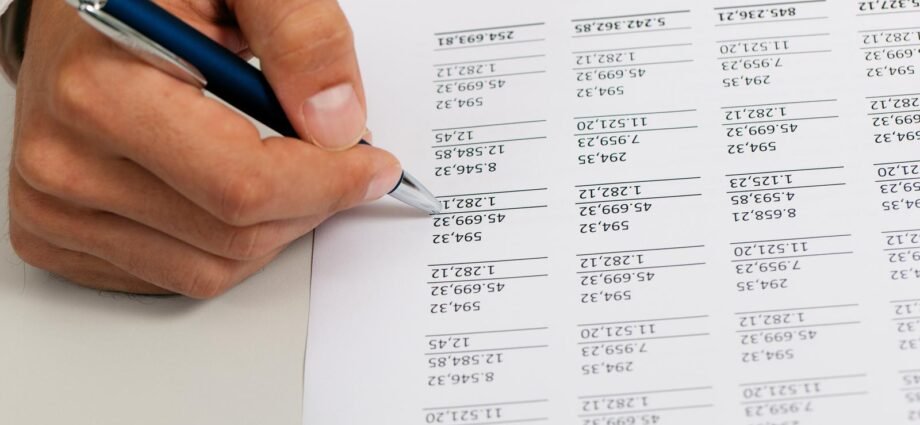 7.959,23 45.699,32
11.521,20 1.282,12 11.521,20
594,32 294,35 8.546,32
45.699,32 7.959,23 12.584,85
1.282,12 11.521,20 12,45
294,35 594,32 594,32
7.959,23 45.699,32 45.699,32
11.521,20 1.282,12 1.282,12
8.658,21 594,32 594,32
4.593,85 45.699,32 45.699,32
1.125,23 1.282,12
594,32 294,35 8.546,32
45.699,32 7.959,23 12.584,85
1.282,12 11.521,20 12,45
294,35 594,32 594,32
7.959,23 45.699,32 45.699,32
11.521,20 1.282,12 1.282,12
845.236,21 5.242.362,85 254.693,81